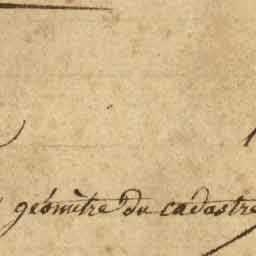 géomètre du cadastre